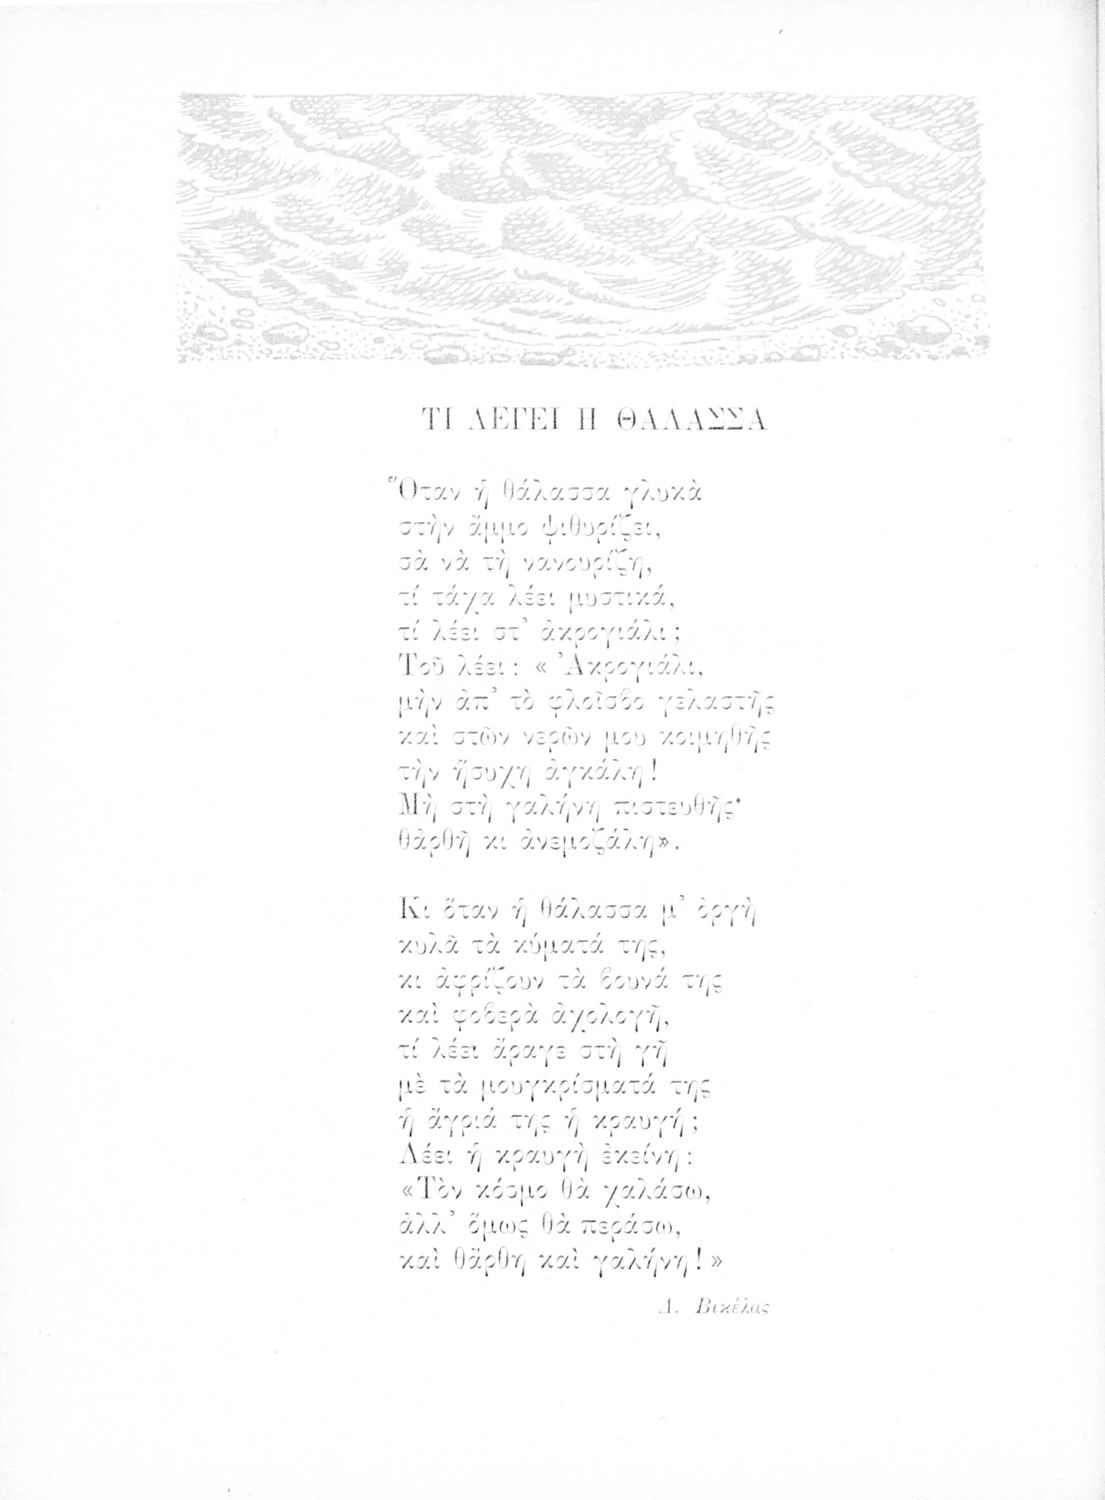 ΤΙ ΛΕΓΕΙ Η ΘΑΛΑΣΣΑ
Ὅταν ἡ θάλασσα γλυκὰ
στὴν ἄμμο ψιθυρίζει,
σὰ νὰ τὴ νανουρίζη,
τί τάχα λέει μυστικά,
τί λέει στ’ ἀκρογιάλι;
Τοῦ λέει: « Ἀκρογιάλι,
μὴν ἀπ’ τὸ φλοῖσβο γελαστῆς
καὶ στῶν νερῶν μου κοιμηθῆς
τὴν ἥσυχη ἀγκάλη!
Μὴ στὴ γαλήνη πιστευθῆς·
θἀρθῆ κι ἀνεμοζάλη».
Κι ὅταν ἡ θάλασσα μ’ ὀργὴ
κυλᾶ τὰ κύματά της,
κι ἀφρίζουν τὰ βουνά της
καὶ φοβερὰ ἀχολογῆ,
τί λέει ἄραγε στὴ γῆ
μὲ τὰ μουγκρίσματά της
ἡ ἄγριά της ἡ κραυγή;
Λέει ἡ κραυγὴ ἐκείνη:
«Τὸν κόσμο θὰ χαλάσω,
ἀλλ’ ὅμως θὰ περάσω,
καὶ θἄρθη καὶ γαλήνη!»
Δ. Βικέλας